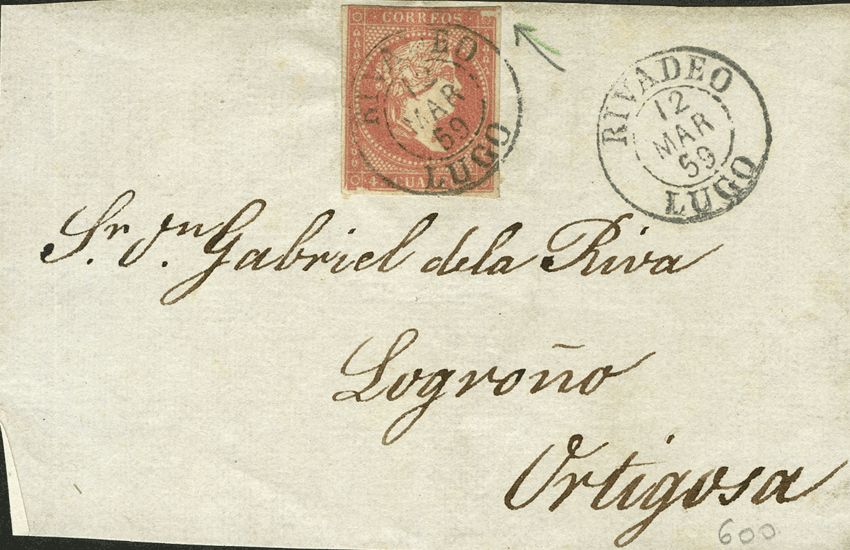 CORREOS
RIVADEO
12
MAR
59
LUGO
4 CUA
RIVADEO
12
MAR
59
LUGO
Sr. Dn. Gabriel de la Riva
Logroño
Ortigosa
600